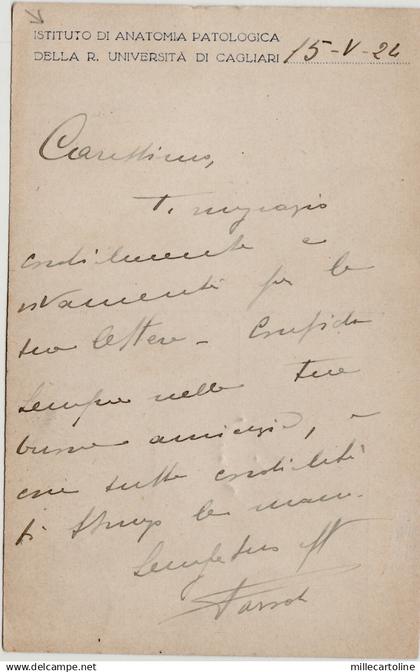 ISTITUTO DI ANATOMIA PATOLOGICA
DELLA R. UNIVERSITÀ DI CAGLIARI 15-V-24
Carissimo,
Ti ringrazio
cordialmente e
vivamente per la
tua lettera - Confido
sempre nella tua
buona amicizia, e
con tutta cordialità
ti stringo la mano.
Sempre tuo
millecartoline.com